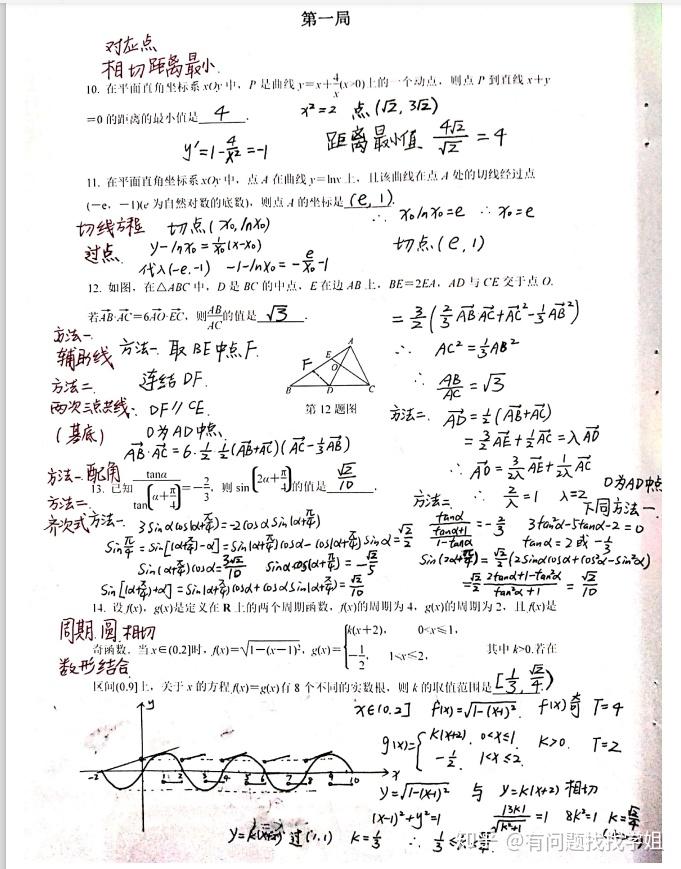 第一局
对应点
相切距离最小.
10. 在平面直角坐标系xOy中，P是曲线y=x+4/x(x>0)上的一个动点，则点P到直线x+y
=0的距离的最小值是 4 .
x²=2 点(√2, 3√2)
y'=1-4/x²=-1
距离最小值 4√2/√2 = 4
11. 在平面直角坐标系xOy中，点A在曲线y=lnx上，且该曲线在点A处的切线经过点
(-e，-1)(e为自然对数的底数)，则点A的坐标是 (e, 1).
切线方程 切点(x₀, lnx₀) ∴ x₀lnx₀=e ∴ x₀=e
过点. y-lnx₀=1/x₀(x-x₀) 切点(e, 1)
代入(-e,-1) -1-lnx₀=-e/x₀-1
12. 如图，在△ABC中，D是BC的中点，E在边AB上，BE=2EA，AD与CE交于点O.
若AB·AC=6AO·EC，则AB/AC的值是 √3 .
= 3/2(2/3 AB AC+AC²-1/3 AB²)
∴ AC²=1/3 AB²
∴ AB/AC=√3
方法一.
辅助线 方法一. 取BE中点F.
方法二. 连结DF.
两次三点共线. DF∥CE.
(基底) O为AD中点.
A
F E O
B D C
第12题图
AB·AC=6·1/2·1/2(AB+AC)(AC-1/3AB)
方法二. AD=1/2(AB+AC)
=3/2AE+1/2AC=λAO
∴ AO=3/2λ AE+1/2λ AC
∴ 2/λ=1 λ=2. O为AD中点
下同方法一.
方法一. 配角
13. 已知 tanα/tan(α+π/4)=-2/3，则sin(2α+π/4)的值是 √2/10 .
方法二.
齐次式 方法一. 3sinαcos(α+π/4)=-2cosαsin(α+π/4)
sinπ/4=sin[(α+π/4)-α]=sin(α+π/4)cosα-cos(α+π/4)sinα=√2/2
sin(α+π/4)cosα=3√2/10 sinαcos(α+π/4)=-√2/5
sin[(α+π/4)+α]=sin(α+π/4)cosα+cosαsin(α+π/4)=√2/10
方法二 tanα/(tanα+1/1-tanα)=-2/3 3tan²α-5tanα-2=0
tanα=2或-1/3
sin(2α+π/4)=√2/2(2sinαcosα+cos²α-sin²α)
=√2/2 2tanα+1-tan²α/tan²α+1=√2/10
14. 设f(x)，g(x)是定义在R上的两个周期函数，f(x)的周期为4，g(x)的周期为2，且f(x)是
周期.圆.相切
奇函数．当x∈(0,2]时，f(x)=√1-(x-1)²，g(x)={k(x+2)，0<x≤1，-1/2，1<x≤2， 其中k>0.若在
数形结合
区间(0,9]上，关于x的方程f(x)=g(x)有8个不同的实数根，则k的取值范围是[1/3, √2/4)
x∈(0,2] f(x)=√1-(x-1)². f(x)奇 T=4
g(x)={k(x+2). 0<x≤1 -1/2. 1<x≤2. k>0. T=2
y
-2 1 2 3 4 5 6 7 8 9 10 x
y=√1-(x-1)² 与 y=k(x+2) 相切
(x-1)²+y²=1 |3k|/√k²+1=1 8k²=1 k=√2/4
y=k(x+2) 过(1,1) k=1/3 ∴ 1/3≤k<√2/4
知乎 @有问题找找学姐